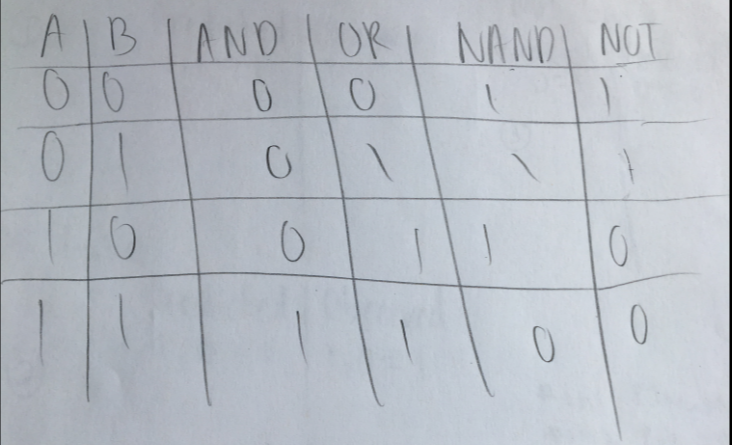 A B AND OR NAND NOT
0 0 0 0 1 1
0 1 0 1 1 1
1 0 0 1 1 0
1 1 1 1 0 0